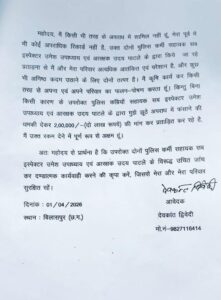 महोदय, मैं पूर्व में किसी भी तरह के अपराध में शामिल नहीं हूं, मेरा पूर्व में
भी कोई आपराधिक रिकार्ड नहीं है, उक्त दोनों पुलिस कर्मी सहायक सब
इंस्पेक्टर उमेश उपाध्याय एवं आरक्षक उदय पाटले के द्वारा किये जा रहे
प्रताड़ना से मैं और मेरा परिवार अत्यधिक आशंकित एवं परेशान है, और कुछ
भी अप्रिय कदम उठाने के लिए दोनों उत्तर है। मैं कृषि कार्य कर किसी
तरह से अपना एवं अपने परिवार का पालन-पोषण करता हूं। किन्तु बिना
किसी कारण के उपरोक्त पुलिस कर्मियों सहायक सब इंस्पेक्टर उमेश
उपाध्याय एवं आरक्षक उदय पाटले के द्वारा मुझे झूठे अपराध में फंसाने की
धमकी देकर 2,00,000/-(दो लाख रूपये) की मांग कर प्रताड़ित कर रहे है,
मैं उक्त रकम देने में पूर्ण रूप से अक्षम हूं।
अतः महोदय से प्रार्थना है कि उपरोक्त दोनों पुलिस कर्मी सहायक सब
इंस्पेक्टर उमेश उपाध्याय एवं आरक्षक उदय पाटले के विरूद्ध उचित जांच
कर दण्डात्मक कार्यवाही करने की कृपा करें, जिससे मेरा और मेरा परिवार
सुरक्षित रहें।
दिनांक :- 01/04/2026
स्थान :- बिलासपुर (छ.ग.)
आवेदक
देवकांत द्विवेदी
मो.नं.-9827116414